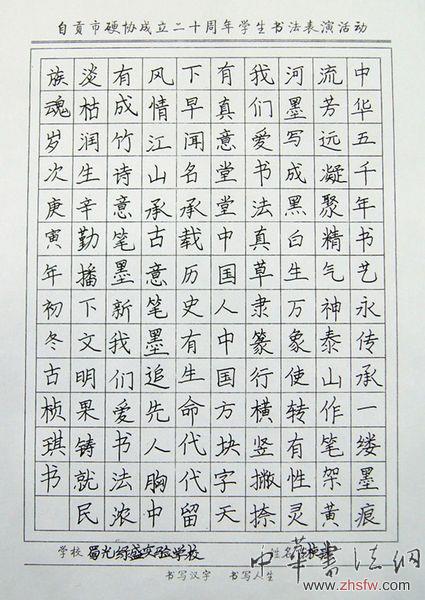 自贡市硬协成立二十周年学生书法表演活动
中华五千年书艺永传承一缕墨痕
流芳远凝聚精气神泰山作笔架黄
河墨写成黑白生万象使转有性灵
我们爱书法真草隶篆行横竖撇捺
有真意堂堂中国人中国方块字天
下早闻名承载历史有生命代代留
风情江山承古意笔墨追先人胸中
有成竹诗意笔墨新我们爱书法浓
淡枯润生辛勤播下文明果铸就民
族魂岁次庚寅年初冬古桢琪书
学校 蜀光绿盛实验学校 姓名
书写汉字 书写人生
中華書法網
www.zhsfw.com